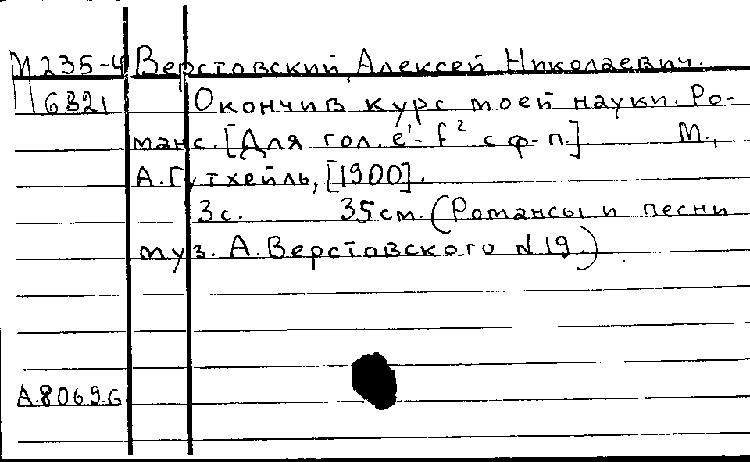 М 235-4 Верстовский, Алексей Николаевич.
П 6321 Окончив курс моей науки. Ро-
манс. [Для гол. e¹-f² с ф-п.] М.,
А. Гутхейль, [1900].
3 с. 35 см. (Романсы и песни
муз. А. Верстовского N 19.)
А.8069.G